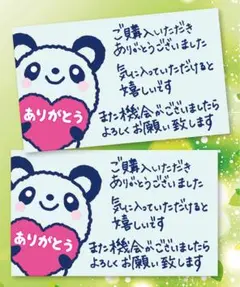 ご購入いただき
ありがとうございました
気に入っていただけると
嬉しいです
また機会がございましたら
よろしくお願い致します
ありがとう
ご購入いただき
ありがとうございました
気に入っていただけると
嬉しいです
また機会がございましたら
よろしくお願い致します
ありがとう